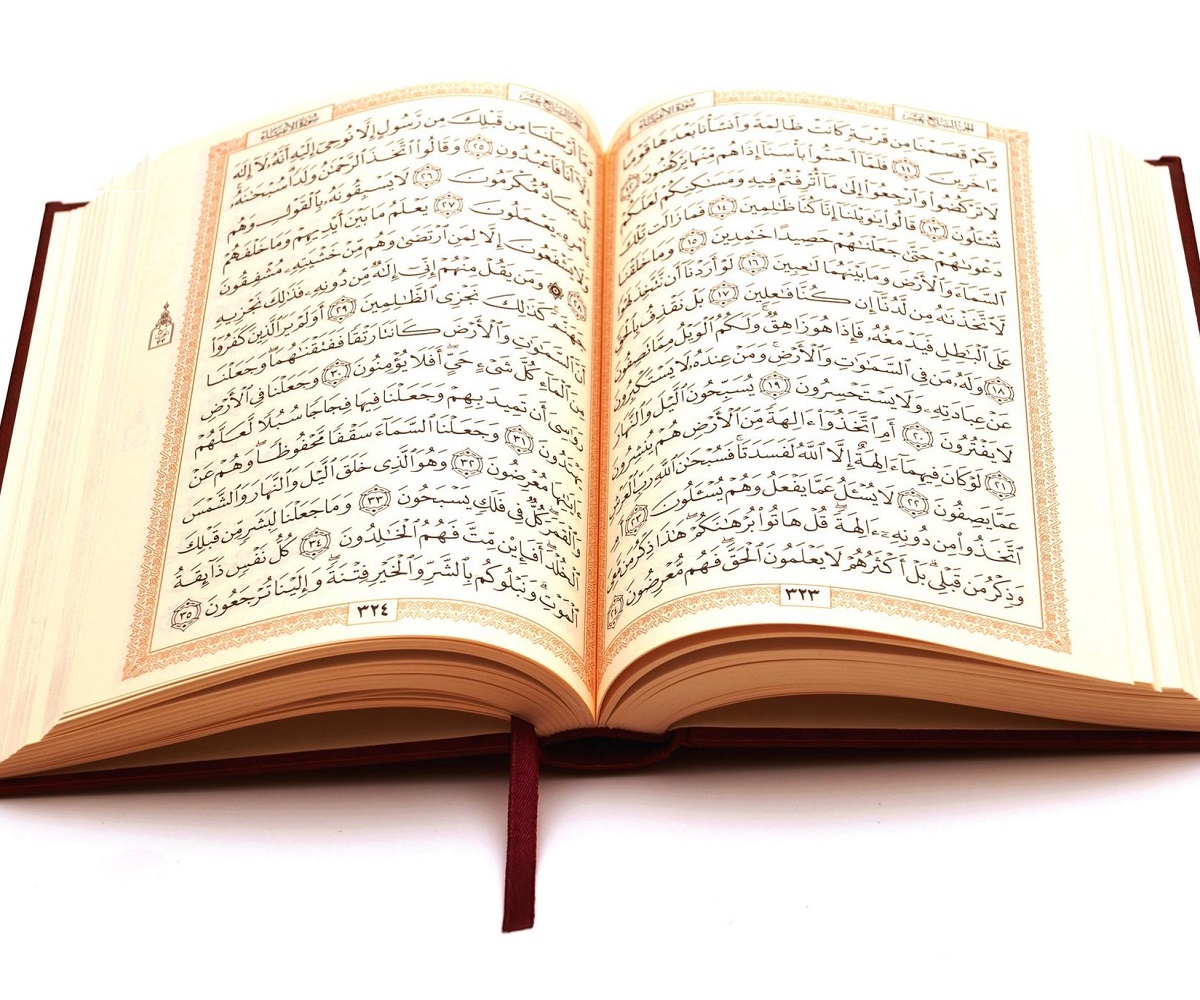 الجزء السابع عشر
سورة الأنبياء
وَكَمْ قَصَمْنَا مِن قَرْيَةٍ كَانَتْ ظَالِمَةً وَأَنشَأْنَا بَعْدَهَا قَوْمًا
ءَاخَرِينَ ١١ فَلَمَّآ أَحَسُّوا۟ بَأْسَنَآ إِذَا هُم مِّنْهَا يَرْكُضُونَ ١٢
لَا تَرْكُضُوا۟ وَٱرْجِعُوٓا۟ إِلَىٰ مَآ أُتْرِفْتُمْ فِيهِ وَمَسَـٰكِنِكُمْ لَعَلَّكُمْ
تُسْـَٔلُونَ ١٣ قَالُوا۟ يَـٰوَيْلَنَآ إِنَّا كُنَّا ظَـٰلِمِينَ ١٤ فَمَا زَالَت تِّلْكَ
دَعْوَىٰهُمْ حَتَّىٰ جَعَلْنَـٰهُمْ حَصِيدًا خَـٰمِدِينَ ١٥ وَمَا خَلَقْنَا
ٱلسَّمَآءَ وَٱلْأَرْضَ وَمَا بَيْنَهُمَا لَـٰعِبِينَ ١٦ لَوْ أَرَدْنَآ أَن نَّتَّخِذَ لَهْوًا
لَّٱتَّخَذْنَـٰهُ مِن لَّدُنَّآ إِن كُنَّا فَـٰعِلِينَ ١٧ بَلْ نَقْذِفُ بِٱلْحَقِّ
عَلَى ٱلْبَـٰطِلِ فَيَدْمَغُهُۥ فَإِذَا هُوَ زَاهِقٌ ۚ وَلَكُمُ ٱلْوَيْلُ مِمَّا تَصِفُونَ
١٨ وَلَهُۥ مَن فِى ٱلسَّمَـٰوَٰتِ وَٱلْأَرْضِ ۚ وَمَنْ عِندَهُۥ لَا يَسْتَكْبِرُونَ
عَنْ عِبَادَتِهِۦ وَلَا يَسْتَحْسِرُونَ ١٩ يُسَبِّحُونَ ٱلَّيْلَ وَٱلنَّهَارَ
لَا يَفْتُرُونَ ٢٠ أَمِ ٱتَّخَذُوٓا۟ ءَالِهَةً مِّنَ ٱلْأَرْضِ هُمْ يُنشِرُونَ
٢١ لَوْ كَانَ فِيهِمَآ ءَالِهَةٌ إِلَّا ٱللَّهُ لَفَسَدَتَا ۚ فَسُبْحَـٰنَ ٱللَّهِ رَبِّ ٱلْعَرْشِ
عَمَّا يَصِفُونَ ٢٢ لَا يُسْـَٔلُ عَمَّا يَفْعَلُ وَهُمْ يُسْـَٔلُونَ ٢٣ أَمِ
ٱتَّخَذُوا۟ مِن دُونِهِۦٓ ءَالِهَةً ۖ قُلْ هَاتُوا۟ بُرْهَـٰنَكُمْ ۖ هَـٰذَا ذِكْرُ مَن مَّعِىَ
وَذِكْرُ مَن قَبْلِى ۗ بَلْ أَكْثَرُهُمْ لَا يَعْلَمُونَ ٱلْحَقَّ ۖ فَهُم مُّعْرِضُونَ ٢٤
٣٢٣
الجزء السابع عشر
سورة الأنبياء
وَمَآ أَرْسَلْنَا مِن قَبْلِكَ مِن رَّسُولٍ إِلَّا نُوحِىٓ إِلَيْهِ أَنَّهُۥ لَآ إِلَـٰهَ
إِلَّآ أَنَا۠ فَٱعْبُدُونِ ٢٥ وَقَالُوا۟ ٱتَّخَذَ ٱلرَّحْمَـٰنُ وَلَدًا ۗ سُبْحَـٰنَهُۥ ۚ
بَلْ عِبَادٌ مُّكْرَمُونَ ٢٦ لَا يَسْبِقُونَهُۥ بِٱلْقَوْلِ وَهُم
بِأَمْرِهِۦ يَعْمَلُونَ ٢٧ يَعْلَمُ مَا بَيْنَ أَيْدِيهِمْ وَمَا خَلْفَهُمْ
وَلَا يَشْفَعُونَ إِلَّا لِمَنِ ٱرْتَضَىٰ وَهُم مِّنْ خَشْيَتِهِۦ مُشْفِقُونَ
٢٨ ۞ وَمَن يَقُلْ مِنْهُمْ إِنِّىٓ إِلَـٰهٌ مِّن دُونِهِۦ فَذَٰلِكَ نَجْزِيهِ
جَهَنَّمَ ۚ كَذَٰلِكَ نَجْزِى ٱلظَّـٰلِمِينَ ٢٩ أَوَلَمْ يَرَ ٱلَّذِينَ كَفَرُوٓا۟
أَنَّ ٱلسَّمَـٰوَٰتِ وَٱلْأَرْضَ كَانَتَا رَتْقًا فَفَتَقْنَـٰهُمَا ۖ وَجَعَلْنَا
مِنَ ٱلْمَآءِ كُلَّ شَىْءٍ حَىٍّ ۖ أَفَلَا يُؤْمِنُونَ ٣٠ وَجَعَلْنَا فِى ٱلْأَرْضِ
رَوَٰسِىَ أَن تَمِيدَ بِهِمْ وَجَعَلْنَا فِيهَا فِجَاجًا سُبُلًا لَّعَلَّهُمْ
يَهْتَدُونَ ٣١ وَجَعَلْنَا ٱلسَّمَآءَ سَقْفًا مَّحْفُوظًا ۖ وَهُمْ عَنْ
ءَايَـٰتِهَا مُعْرِضُونَ ٣٢ وَهُوَ ٱلَّذِى خَلَقَ ٱلَّيْلَ وَٱلنَّهَارَ وَٱلشَّمْسَ
وَٱلْقَمَرَ ۖ كُلٌّ فِى فَلَكٍ يَسْبَحُونَ ٣٣ وَمَا جَعَلْنَا لِبَشَرٍ مِّن قَبْلِكَ
ٱلْخُلْدَ ۖ أَفَإِي۟ن مِّتَّ فَهُمُ ٱلْخَـٰلِدُونَ ٣٤ كُلُّ نَفْسٍ ذَآئِقَةُ
ٱلْمَوْتِ ۗ وَنَبْلُوكُم بِٱلشَّرِّ وَٱلْخَيْرِ فِتْنَةً ۖ وَإِلَيْنَا تُرْجَعُونَ ٣٥
٣٢٤